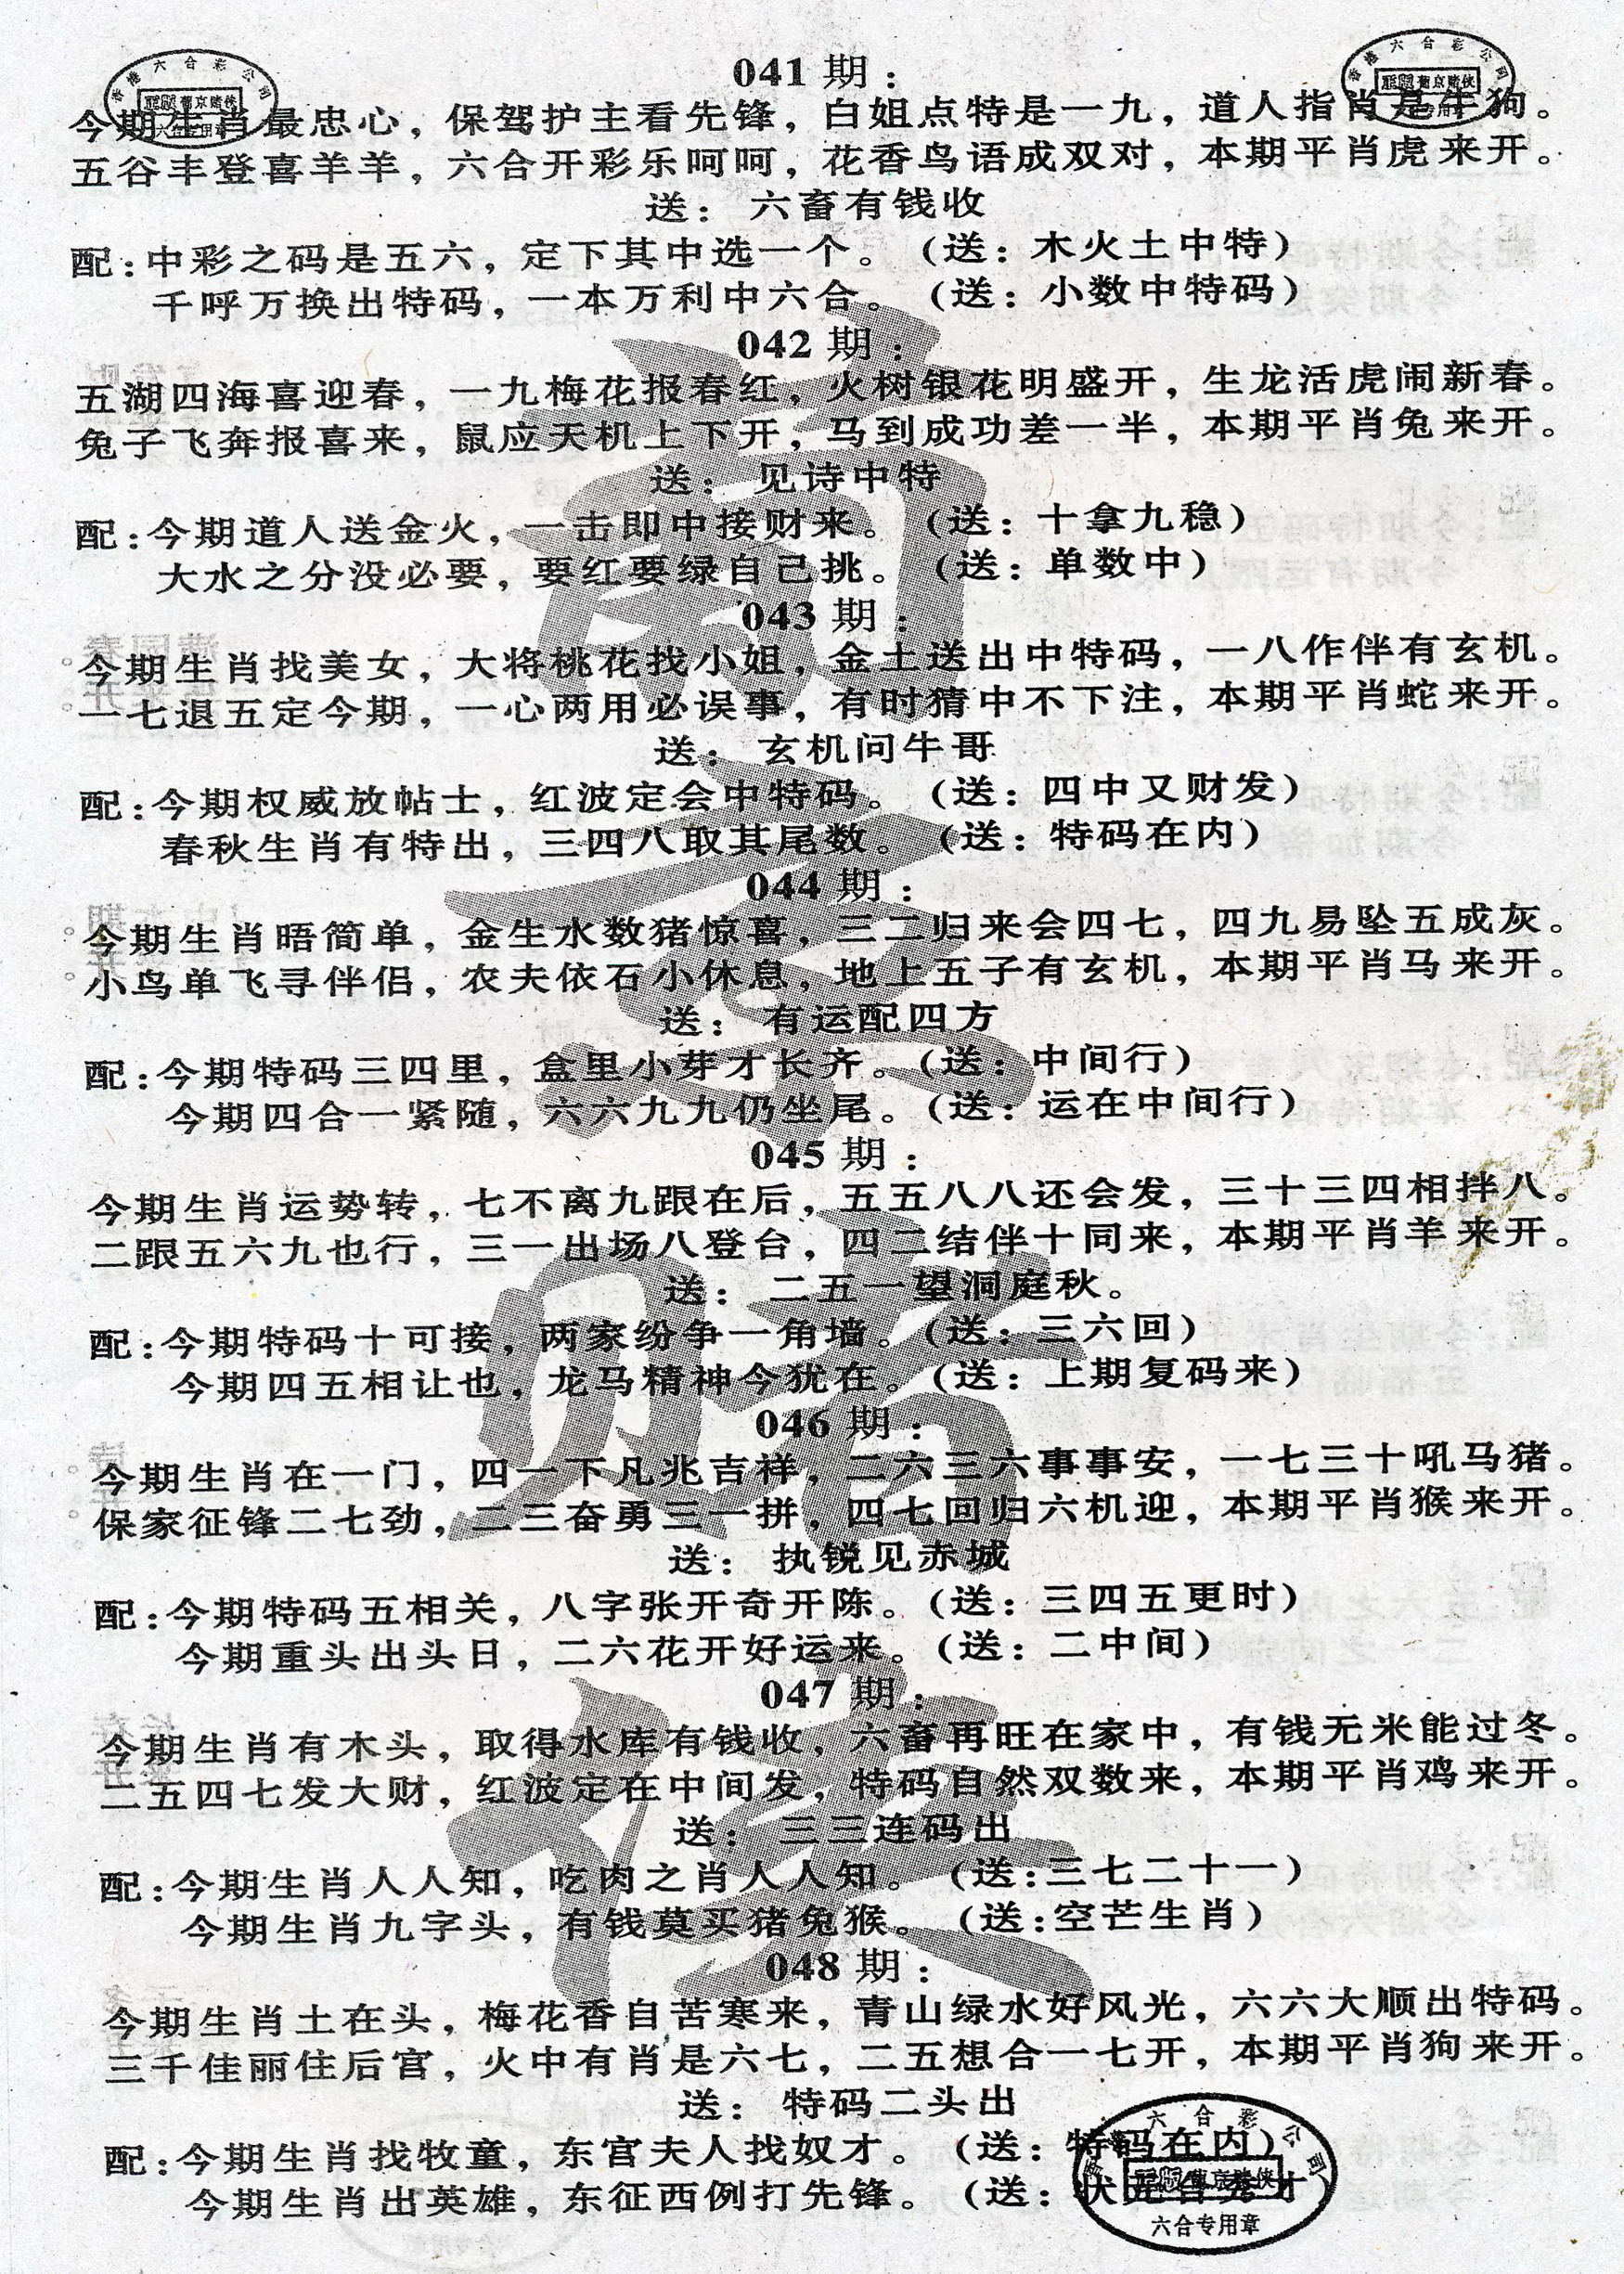 041 期：
今期生肖最忠心，保驾护主看先锋，白姐点特是一九，道人指肖是牛狗。
五谷丰登喜羊羊，六合开彩乐呵呵，花香鸟语成双对，本期平肖虎来开。
送：六畜有钱收
配：中彩之码是五六，定下其中选一个。（送：木火土中特）
千呼万换出特码，一本万利中六合。（送：小数中特码）
042 期：
五湖四海喜迎春，一九梅花报春红，火树银花明盛开，生龙活虎闹新春。
兔子飞奔报喜来，鼠应天机上下开，马到成功差一半，本期平肖兔来开。
送：见诗中特
配：今期道人送金火，一击即中接财来。（送：十拿九稳）
大水之分没必要，要红要绿自己挑。（送：单数中）
043 期：
今期生肖找美女，大将桃花找小姐，金土送出中特码，一八作伴有玄机。
一七退五定今期，一心两用必误事，有时猜中不下注，本期平肖蛇来开。
送：玄机问牛哥
配：今期权威放帖士，红波定会中特码。（送：四中又财发）
春秋生肖有特出，三四八取其尾数。（送：特码在内）
044 期：
今期生肖晤简单，金生水数猪惊喜，三二归来会四七，四九易坠五成灰。
小鸟单飞寻伴侣，农夫依石小休息，地上五子有玄机，本期平肖马来开。
送：有运配四方
配：今期特码三四里，盒里小芽才长齐。（送：中间行）
今期四合一紧随，六六九九仍坐尾。（送：运在中间行）
045 期：
今期生肖运势转，七不离九跟在后，五五八八还会发，三十三四相拌八。
二跟五六九也行，三一出场八登台，四二结伴十同来，本期平肖羊来开。
送：二五一望洞庭秋。
配：今期特码十可接，两家纷争一角墙。（送：三六回）
今期四五相让也，龙马精神今犹在。（送：上期复码来）
046 期：
今期生肖在一门，四一下凡兆吉祥，二六三六事事安，一七三十吼马猪。
保家征锋二七劲，二三奋勇三一拼，四七回归六机迎，本期平肖猴来开。
送：执锐见赤城
配：今期特码五相关，八字张开奇开陈。（送：三四五更时）
今期重头出头日，二六花开好运来。（送：二中间）
047 期：
今期生肖有木头，取得水库有钱收，六畜再旺在家中，有钱无米能过冬。
二五四七发大财，红波定在中间发，特码自然双数来，本期平肖鸡来开。
送：三三连码出
配：今期生肖人人知，吃肉之肖人人知。（送：三七二十一）
今期生肖九字头，有钱莫买猪兔猴。（送：空芒生肖）
048 期：
今期生肖土在头，梅花香自苦寒来，青山绿水好风光，六六大顺出特码。
三千佳丽住后宫，火中有肖是六七，二五想合一七开，本期平肖狗来开。
送：特码二头出
配：今期生肖找牧童，东官夫人找奴才。（送：特码在内）
今期生肖出英雄，东征西例打先锋。（送：
六合专用章